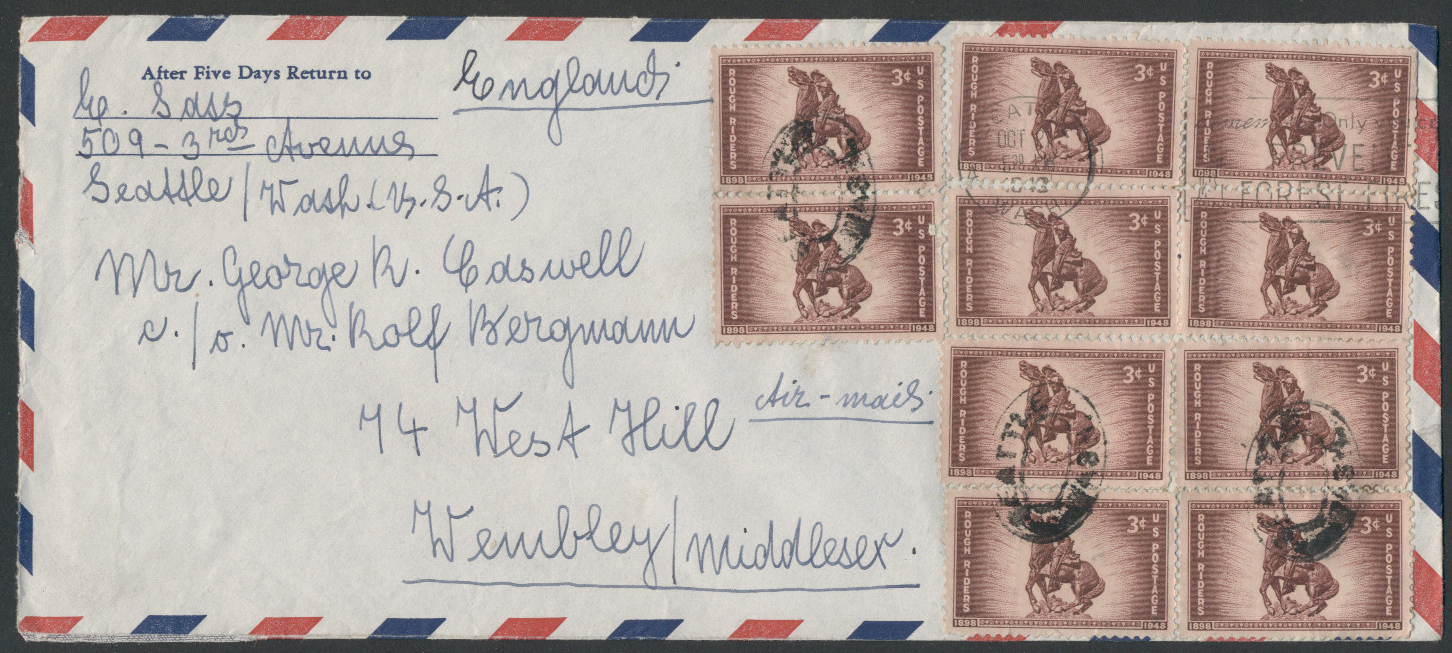 After Five Days Return to
509 - 3rd Avenue
Seattle / Wash. (U.S.A.)
England
Mr. George R. Caswell
c./o. Mr. Rolf Bergmann
74 West Hill
Air-mail
Wembley / Middlesex.
ROUGH RIDERS 3¢ US POSTAGE 1898 1948
ROUGH RIDERS 3¢ US POSTAGE 1898 1948
ROUGH RIDERS 3¢ US POSTAGE 1898 1948
ROUGH RIDERS 3¢ US POSTAGE 1898 1948
ROUGH RIDERS 3¢ US POSTAGE 1898 1948
ROUGH RIDERS 3¢ US POSTAGE 1898 1948
ROUGH RIDERS 3¢ US POSTAGE 1898 1948
ROUGH RIDERS 3¢ US POSTAGE 1898 1948
ROUGH RIDERS 3¢ US POSTAGE 1898 1948
ROUGH RIDERS 3¢ US POSTAGE 1898 1948
OCT
WASH
Only
FOREST FIRES
SEATTLE WASH.
SEATTLE WASH.
SEATTLE WASH.